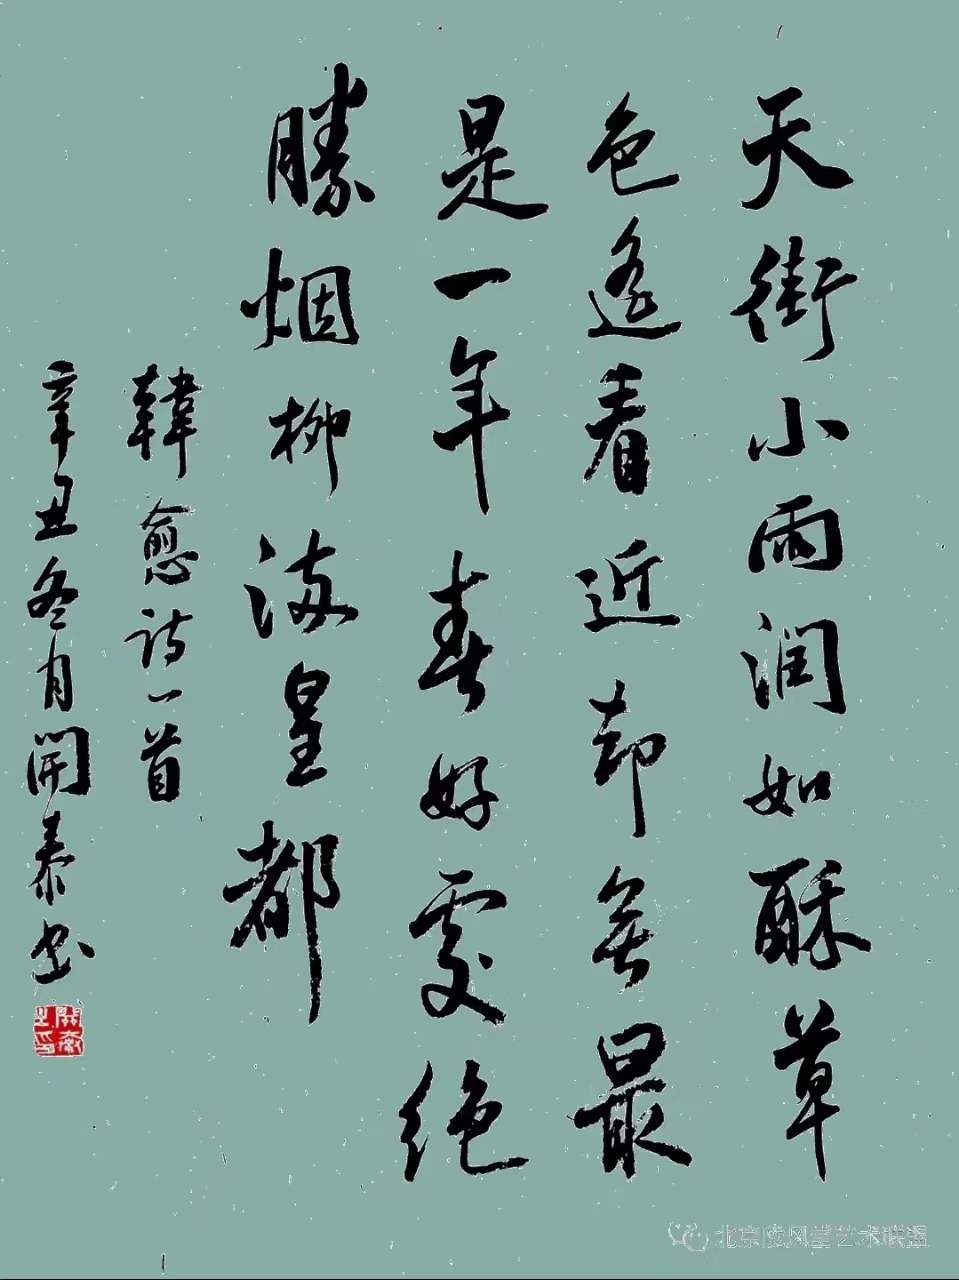 天街小雨润如酥草
色遥看近却无最
是一年春好处绝
勝烟柳满皇都
韓愈诗一首
辛丑冬月開泰书
北京陵风堂艺术联盟